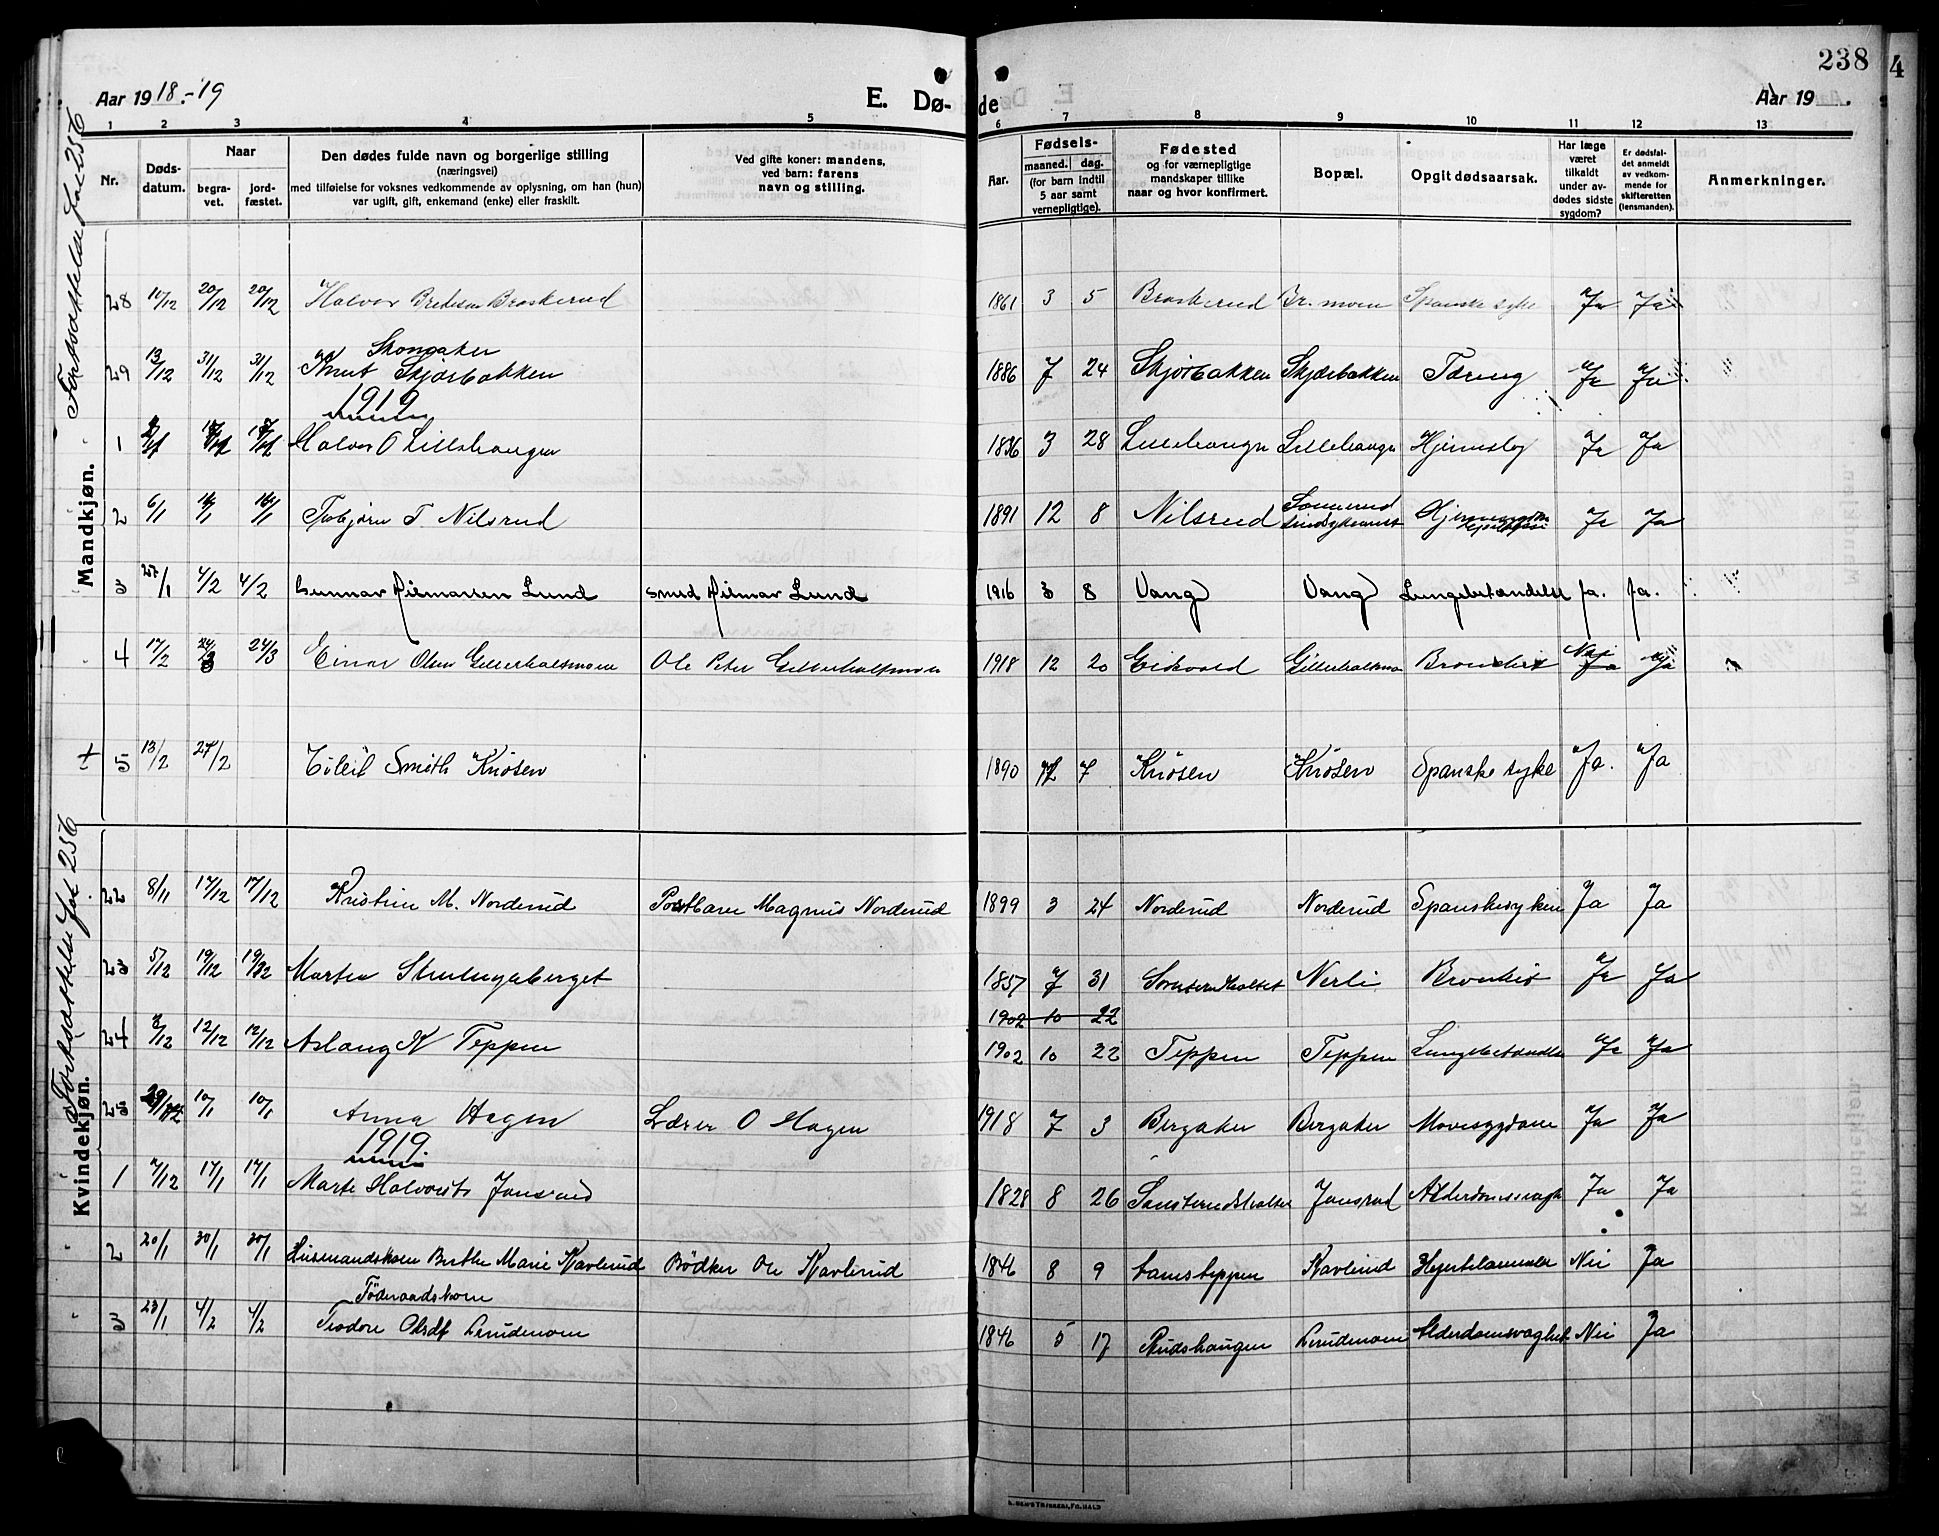 238
4
Aar 1918.-19
E. Dø-
de
Aar 19 .
1 2 3 4 5 6 7 8 9 10 11 12 13
Nr.
Døds-
datum.
Naar
begra-
vet.
jord-
fæstet.
Den dødes fulde navn og borgerlige stilling
(næringsvei)
med tilføielse for voksnes vedkommende av oplysning, om han (hun)
var ugift, gift, enkemand (enke) eller fraskilt.
Ved gifte koner: mandens,
ved barn: farens
navn og stilling.
Aar.
Fødsels-
maaned. dag.
(for barn indtil
5 aar samt
vernepligtige).
Fødested
og for værnepligtige
mandskaper tillike
naar og hvor konfirmert.
Bopæl.
Opgit dødsaarsak.
Har læge
været
tilkaldt
under av-
dødes sidste
sygdom?
Er dødsfal-
det anmeldt
av vedkom-
mende for
skifteretten
(lensmanden).
Anmerkninger.
Mandkjøn.
28 20/12 20/12 Halvor Bredesen Braskerud 1861 3 5 Braskerud Br. moen Spanske syke Ja Ja
Skomaker
29 13/12 31/12 31/12 Knut Skjærbakken 1886 7 24 Skjærbakken Skjærbakken Tæring Ja Ja
1919
1 Halvor O Lillehaugen 1836 3 28 Lillehaugen Lillehaugen Ja Ja
2 6/1 16/1 16/1 Torbjørn T Nilsrud 1891 12 8 Nilsrud Ja Ja
3 27/1 4/2 4/2 Gunnar Hilmarsen Lund smed Hilmar Lund 1916 3 8 Vang Vang Lungebetændelse ja. ja.
4 17/2 24/3 24/3 Einar Olsen Gillerholtmoen Ole Peter Gillerholtmoen 1918 12 20 Eidsvold Gillerholtmo Bronkit Nei Ja
+ 5 13/2 27/2 Eileif Smith Knosen 1890 7 Knosen Knosen Spanske syke Ja. Ja
Kvindekjøn.
22 8/11 17/12 17/12 Kristine M. Norderud Magnus Norderud 1899 3 24 Norderud Norderud Spanskesyken Ja Ja
23 5/12 19/12 19/12 Martea 1857 7 31 Nerli Bronkit Ja Ja
1902 10 22
24 3/12 12/12 12/12 Aslaug K Teppen 1902 10 22 Teppen Teppen Lungebetændelse Ja Ja
25 29/12 10/1 10/1 Anna Hagen Lærer O Hagen 1918 7 3 Bergaker Bergaker Mavesygdom Ja Ja
1919
1 7/12 17/1 17/1 Marte Halvorsdt Jonsrud 1828 8 26 Jonsrud Alderdomssvagh Ja Ja
2 20/1 30/1 30/1 Husmandskone Berthe Marie Kavlerud Bödker Ole Kavlerud 1846 8 9 Kavlerud Hjertelammelse Nei Ja
Föderaadskone
3 23/1 4/2 4/2 Teodore Olsdt Linudemoen 1846 5 17 Rudshaugen Linudemoen Alderdomsvaghet Nei Ja